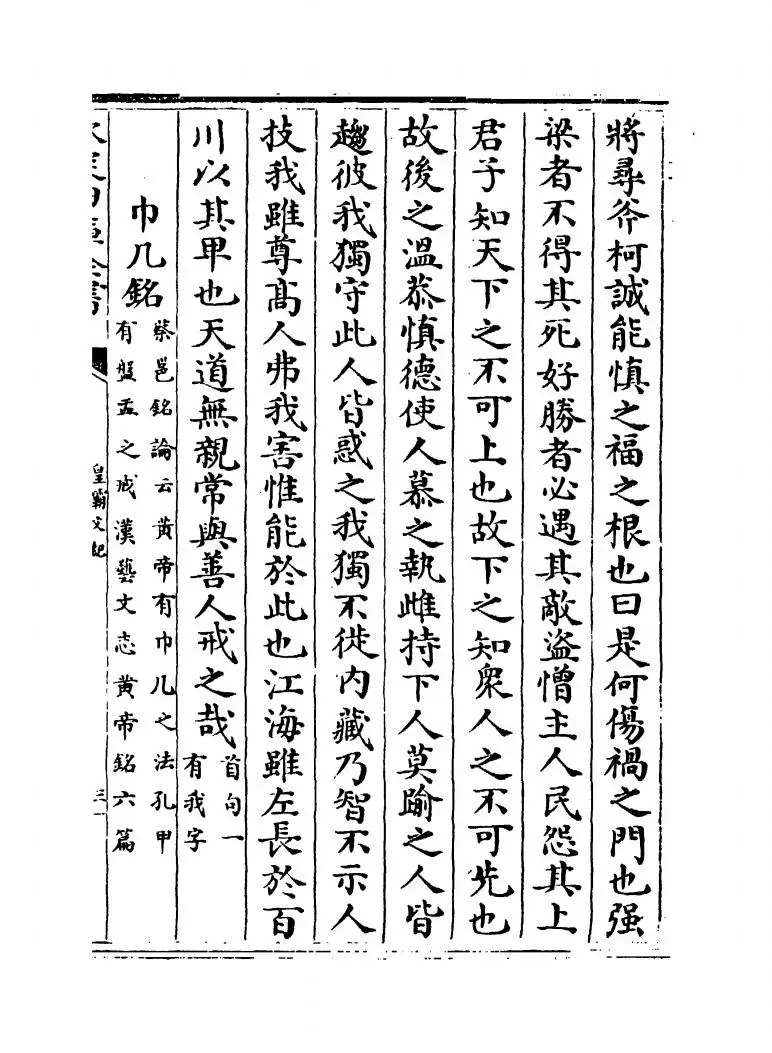 將尋斧柯誠能慎之福之根也曰是何傷禍之門也强
梁者不得其死好勝者必遇其敵盜憎主人民怨其上
君子知天下之不可上也故下之知衆人之不可先也
故後之溫恭慎德使人慕之執雌持下人莫踰之人皆
趨彼我獨守此人皆惑之我獨不徙内藏乃智不示人
技我雖尊髙人弗我害惟能於此也江海雖左長於百
川以其卑也天道無親常與善人戒之哉
首句一
有我字
巾几銘
蔡邕銘論云黄帝有巾几之法孔甲
有盤盂之戒漢藝文志黄帝銘六篇
皇霸文紀